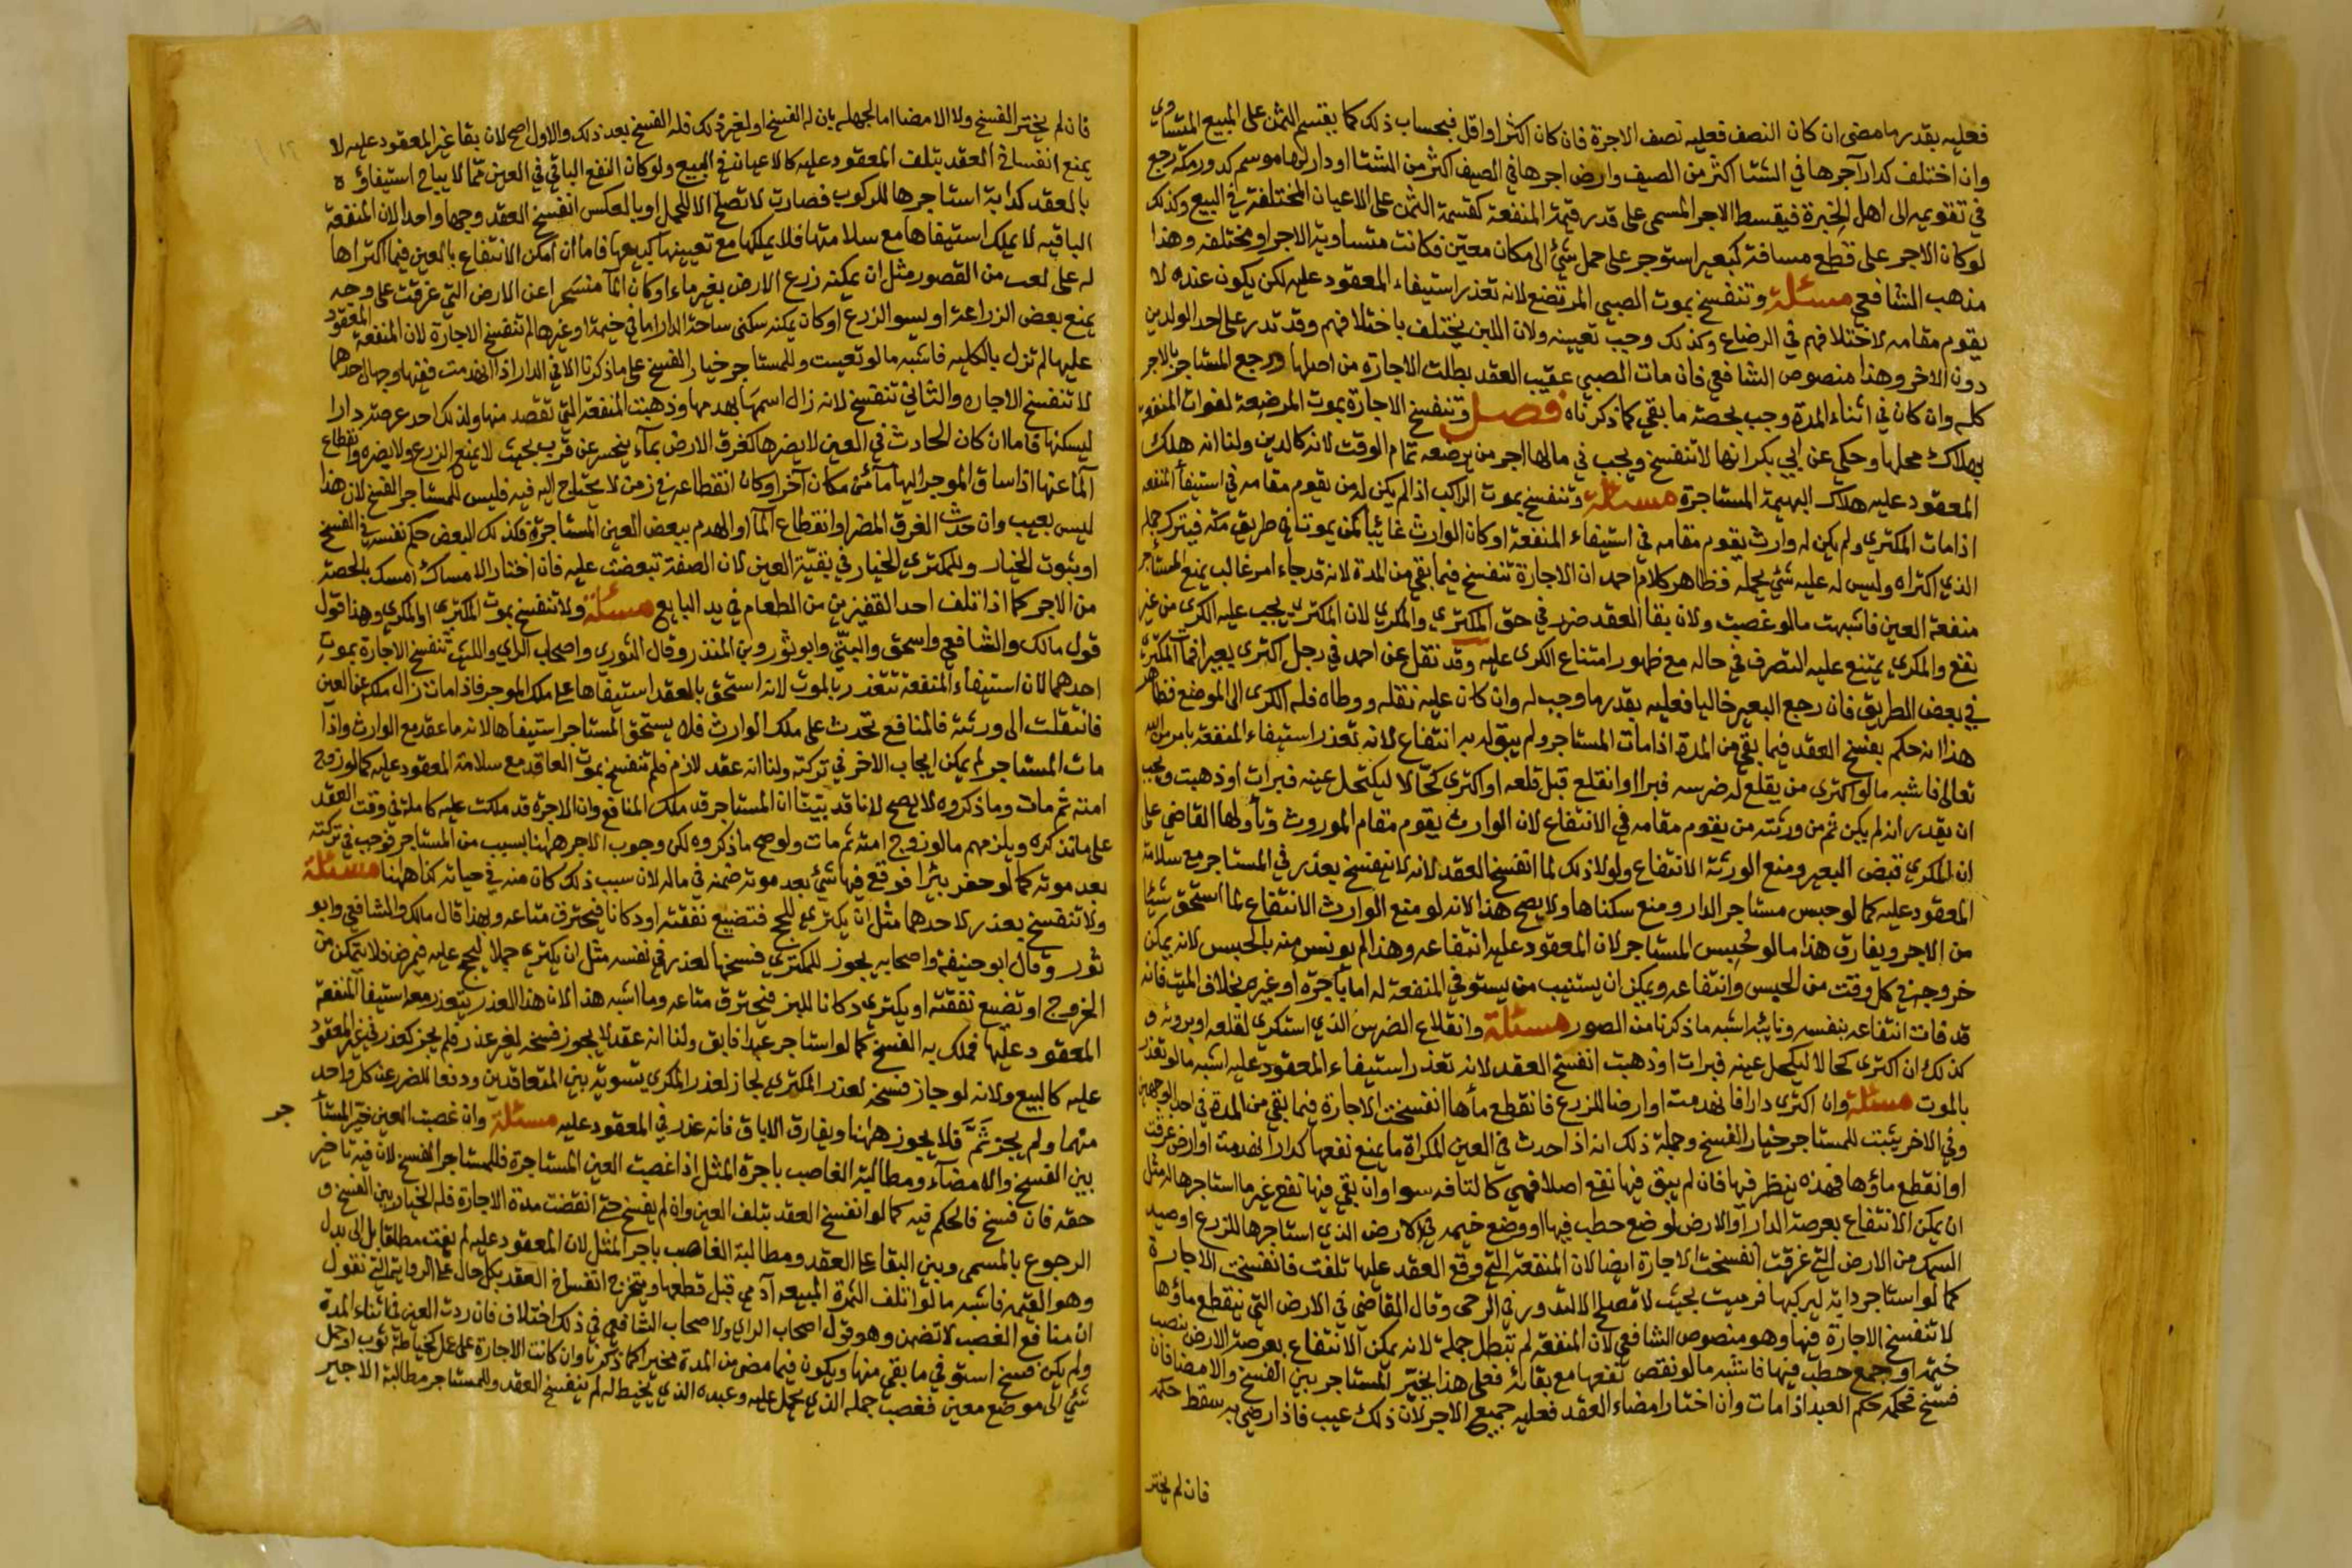 فعليه بقدر ما مضى ان كان النصف فعليه نصف الاجرة فان كان اكثر او اقل فبحساب ذلك كما يقسم الثمن على المبيع المتساوي
وان اختلف كدار آجرها في الشتا اكثر من الصيف وارض اجرها في الصيف اكثر من الشتا او دار لها موسم كدور مكة رجع
في تقويمه الى اهل الخبرة فيقسط الاجر المسمى على قدر قيمة المنفعة كقسمة الثمن على الاعيان المختلفة في البيع وكذلك
لو كان الاجر على قطع مسافة كبعير استوجر على حمل شئ الى مكان معين فكانت متساوية الاجر او مختلفه وهذا
مذهب الشافعي مسئلة وتنفسخ بموت الصبي المرتضع لانه تعذر استيفاء المعقود عليه لكن يكون عنده لا
يقوم مقامه لاختلافهم في الرضاع وكذلك وجب تعيينه ولان اللبن يختلف باختلافهم وقد تدر على احد الولدين
دون الاخر وهذا منصوص الشافعي فان مات الصبي عقيب العقد بطلت الاجارة من اصلها ورجع المستاجر بالاجر
كله وان كان في اثناء المدة وجب بحصة ما بقي كما ذكرناه فصل وتنفسخ الاجارة بموت المرضعة لفوات المنفعة
بهلاك محلها وحكي عن ابي بكر انها لا تنفسخ ويجب في مالها اجر من يرضعه تمام الوقت لانه كالدين ولنا انه هلك
المعقود عليه هلاك البهيمة المستاجرة مسئلة وتنفسخ بموت الراكب اذا لم يكن له من يقوم مقامه في استيفا المنفعه
اذا مات المكتري ولم يكن له وارث يقوم مقامه في استيفاء المنفعة او كان الوارث غائبا كمن يموت في طريق مكه فيترك جمله
الذي اكتراه وليس له عليه شئ يحمله فظاهر كلام احمد ان الاجارة تنفسخ فيما بقي من المدة لانه قد جاء امر غالب يمنع المستاجر
منفعة العين فاشبهت ما لو غصبت ولان بقا العقد ضرر في حق المكتري والمكري لان المكتري يجب عليه الكرى من غير
نفع والمكري يمتنع عليه التصرف في حاله مع ظهور امتناع الكرى عليه وقد نقل عن احمد في رجل اكترى بعيرا فمات المكتري
في بعض الطريق فان رجع البعير خاليا فعليه بقدر ما وجب له وان كان عليه ثقله ووطاه فله الكرى الى الموضع فظاهر
هذا انه حكم بفسخ العقد فيما بقي من المدة اذا مات المستاجر ولم يبق له به انتفاع لانه تعذر استيفاء المنفعة بامر من الله
تعالى فاشبه ما لو اكترى من يقلع له ضرسه فبرا او انقلع قبل قلعه او اكترى كحالا ليكتحل عينه فبرات او ذهبت ويجب
ان يقدر انه لم يكن ثم من ورثته من يقوم مقامه في الانتفاع لان الوارث يقوم مقام الموروث وتأولها القاضي على
ان المكري قبض البعير ومنع الورثة الانتفاع ولولا ذلك لما انفسخ العقد لانه لا ينفسخ بعذر في المستاجر مع سلامة
المعقود عليه كما لو حبس مستاجر الدار ومنع سكناها ولا يصح هذا لانه لو منع الوارث الانتفاع لما استحق شيئا
من الاجر ويفارق هذا ما لو حبس المستاجر لان المعقود عليه انتفاعه وهذا لم يونس منه بالحبس لانه يمكن
خروجه في كل وقت من الحبس وانتفاعه ويمكن ان يستنيب من يستوفي المنفعة له اما باجرة او غيره بخلاف الميت فانه
قد فات انتفاعه بنفسه ونايبه اشبه ما ذكرنا من الصور مسئلة وانقلاع الضرس الذي استكري لقلعه او بروئه و
كذلك ان اكترى كحالا ليكحل عينه فبرات او ذهبت انفسخ العقد لانه تعذر استيفاء المعقود عليه اشبه ما لو تعذر
بالموت مسئلة وان اكترى دارا فانهدمت او ارضا للزرع فانقطع ماءها انفسخت الاجارة فيما بقي من المدة في احد الوجهين
وفي الاخر يثبت للمستاجر خيار الفسخ وجملة ذلك انه اذا حدث في العين المكراة ما يمنع نفعها كدار انهدمت او ارض غرقت
او انقطع ماؤها فهذه ينظر فيها فان لم يبق فيها نفع اصلا فهي كالتالفه سوا وان بقي فيها نفع غير ما استاجرها له مثل
ان يمكن الانتفاع بعرصة الدار او الارض لوضع حطب فيها او وضع خيمه في الارض الذي استاجرها للزرع او صيد
السمك من الارض التي غرقت انفسخت الاجارة ايضا لان المنفعة التي وقع العقد عليها تلفت فانفسخت الاجارة
كما لو استاجر دابة ليركبها فزمنت بحيث لا تصلح الا لتدور في الرحى وقال القاضي في الارض التي ينقطع ماؤها
لا تنفسخ الاجارة فيها وهو منصوص الشافعي لان المنفعة لم تبطل جملة لانه يمكن الانتفاع بعرصة الارض بنصب
خيمه او جمع حطب فيها فاشبه ما لو نقص نفعها مع بقائه فعلى هذا يخير المستاجر بين الفسخ والامضا فان
فسخ فحكمه حكم العبد اذا مات وان اختار امضاء العقد فعليه جميع الاجر لان ذلك عيب فاذا رضي به سقط حكمه
فان لم يختر
فان لم يختر الفسخ ولا الامضا اما لجهله بان له الفسخ او لغير ذلك فله الفسخ بعد ذلك والاول اصح لان بقا غير المعقود عليه لا
يمنع انفساخ العقد بتلف المعقود عليه كالاعيان في البيع ولو كان النفع الباقي في العين مما لا يباح استيفاؤه
بالعقد كدابة استاجرها للركوب فصارت لا تصلح الا للحمل او بالعكس انفسخ العقد وجها واحدا لان المنفعة
الباقيه لا يملك استيفاها مع سلامتها فلا يملكها مع تعيينها كبيعها فاما ان امكن الانتفاع بالعين فيما اكتراها
له على نعت من القصور مثل ان يمكنه زرع الارض بغير ماء او كان الما منحسرا عن الارض التي غرقت على وجه
يمنع بعض الزراعة او يسو الزرع او كان يمكنه سكنى ساحة الدار اما في خيمة او غيرها لم تنفسخ الاجارة لان المنفعة المعقود
عليها لم تزل بالكليه فاشبه ما لو تعيبت وللمستاجر خيار الفسخ على ما ذكرنا الا في الدار اذا انهدمت ففيها وجهان احدهما
لا تنفسخ الاجاره والثاني تنفسخ لانه زال اسمها بهدمها وذهبت المنفعة التي تقصد منها ولذلك احد عرصة دارا
ليسكنها فاما ان كان الحادث في العين لا يضرها كغرق الارض بماء ينحسر عن قرب بحيث لا يمنع الزرع ولا يضره وانقطاع
الما عنها اذا ساق الموجر اليها مآء من مكان آخر او كان انقطاعه في زمن لا يحتاج اليه فيه فليس للمستاجر الفسخ لان هذا
ليس بعيب وان حدث الغرق المضر او انقطاع الما او الهدم ببعض العين المستاجرة فلذلك البعض حكم نفسه في الفسخ
او ثبوت الخيار وللمكتري الخيار في بقية العين لان الصفقة تبعضت عليه فان اختار الامساك امسك بالحصة
من الاجر كما اذا تلف احد القفيزين من الطعام في يد البايع مسئلة ولا تنفسخ بموت المكتري او المكري وهذا قول
قول مالك والشافعي واسحق والبتي وابو ثور وبن المنذر وقال الثوري واصحاب الراي والليث تنفسخ الاجارة بموت
احدهما لان استيفاء المنفعة تتعذر بالموت لانه استحق بالعقد استيفاها على ملك الموجر فاذا مات زال ملكه عن العين
فانتقلت الى ورثته فالمنافع تحدث على ملك الوارث فلا يستحق المستاجر استيفاها لانه ما عقد مع الوارث واذا
مات المستاجر لم يمكن ايجاب الاجر في تركته ولنا انه عقد لازم فلم تنفسخ بموت العاقد مع سلامة المعقود عليه كما لو زوج
امته ثم مات وما ذكروه لا يصح لانا قد بينا ان المستاجر قد ملك المنافع وان الاجرة قد ملكت عليه كاملة في وقت العقد
على ما نذكره ويلزمهم ما لو زوج امته ثم مات ولو صح ما ذكروه لكن وجوب الاجر ههنا بسبب من المستاجر فوجب في تركته
بعد موته كما لو حفر بئرا فوقع فيها شئ بعد موته ضمنه في ماله لان سبب ذلك كان منه في حياته كذا ههنا مسئلة
ولا تنفسخ بعذر لاحدهما مثل ان يكتري للحج فتضيع نفقته او دكانا فيحترق متاعه وبهذا قال مالك والشافعي وابو
ثور وقال ابو حنيفة واصحابه يجوز للمكتري فسخها لعذر في نفسه مثل ان يكتري جملا ليحج عليه فيمرض فلا يتمكن من
الخروج او تضيع نفقته او يكتري دكانا للبز فيحترق متاعه وما اشبه هذا لان هذا العذر يتعذر معه استيفا المنفعة
المعقود عليها فملك به الفسخ كما لو استاجر عبدا فابق ولنا انه عقد لا يجوز فسخه لغير عذر فلم يجز كعذر في غير المعقود
عليه كالبيع ولانه لو جاز فسخه لعذر المكتري لجاز لعذر المكري تسوية بين المتعاقدين ودفعا للضرر عن كل واحد
منهما ولم يجز ثَمَّ فلا يجوز ههنا ويفارق الاباق فانه عذر في المعقود عليه مسئلة وان غصبت العين خير المستأ جر
بين الفسخ والامضآء ومطالبة الغاصب باجرة المثل اذا غصبت العين المستاجرة فللمستاجر الفسخ لان فيه تاخير
حقه فان فسخ فالحكم فيه كما لو انفسخ العقد بتلف العين وان لم يفسخ حتى انقضت مدة الاجارة فله الخيار بين الفسخ و
الرجوع بالمسمى وبين البقا على العقد ومطالبة الغاصب باجر المثل لان المعقود عليه لم يفت مطلقا بل الى بدل
وهو القيمه فاشبه ما لو اتلف الثمرة المبيعه آدمي قبل قطعها ويتخرج انفساخ العقد بكل حال على الرواية التي نقول
ان منافع الغصب لا تضمن وهو قول اصحاب الراي ولاصحاب الشافعي في ذلك اختلاف فان ردت العين في اثناء المدة
ولم يكن فسخ استوفى ما بقي منها ويكون فيما مضى من المدة مخيرا كما ذكرنا وان كانت الاجارة على عمل كخياطة ثوب او حمل
شئ الى موضع معين فغصب جمله الذي يحمل عليه وعبده الذي يخيط له لم ينفسخ العقد وللمستاجر مطالبة الاجير